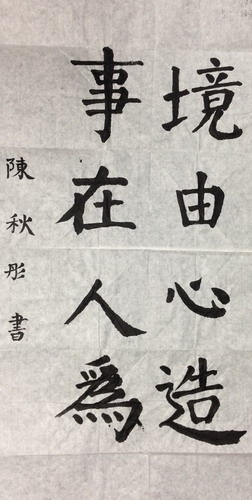 境由心造
事在人為
陳秋彤書